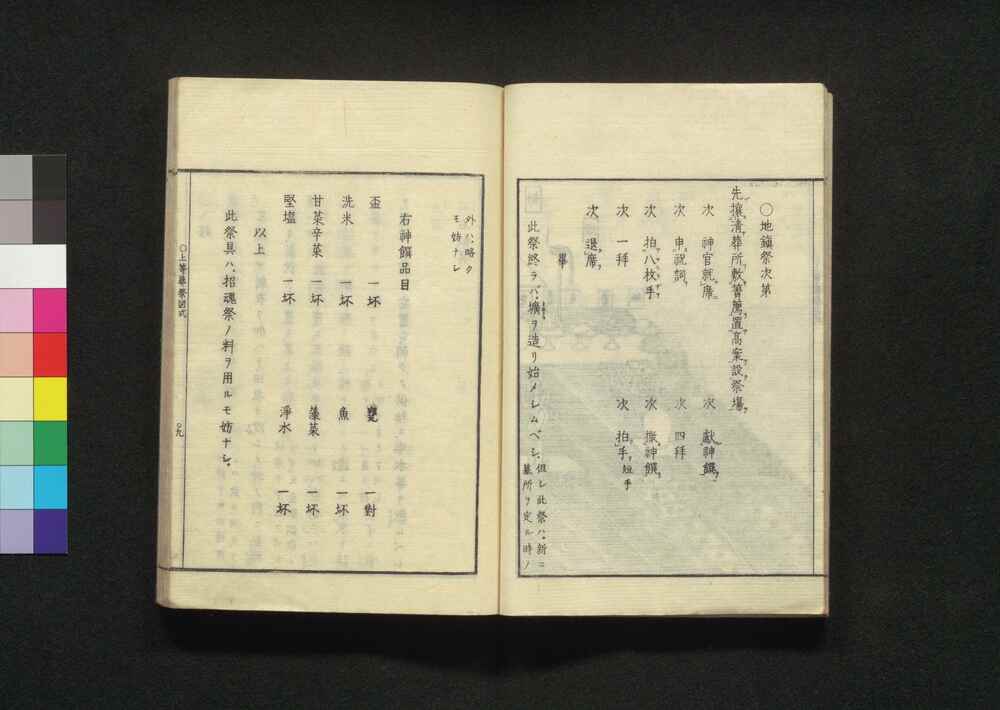 〇地鎮祭次第
先攘清葬所敷簀薦置高案設祭場
次　神官就席　次　獻神饌
次　申祝詞　次　四拜
次　拍八枚手　次　撤神饌
次　一拜　次　拍手 短手
次　退席
畢
此祭終ラバ、壙ヲ造リ始メシムベシ、但シ此祭ハ、新ニ
墓所ヲ定ル時ノ
外ハ、略ク
モ妨ナシ
右神饌品目
盃　一坏　甕　一對
洗米　一坏　魚　一坏
甘菜辛菜　一坏　藻菜　一坏
堅塩　一坏　淨水　一坏
以上
此祭具ハ、招魂祭ノ料ヲ用ルモ妨ナシ、
〇上等葬祭図式　〇九